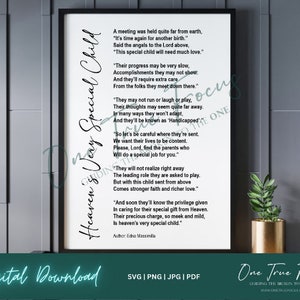 Heaven's Very Special Child
A meeting was held quite far from earth,
"It's time again for another birth."
Said the angels to the Lord above,
"This special child will need much love."
"Their progress may be very slow,
Accomplishments they may not show.
And they'll require extra care
From the folks they meet down there."
"They may not run or laugh or play,
Their thoughts may seem quite far away.
In many ways they won't adapt,
And they'll be known as 'Handicapped'."
"So let's be careful where they're sent.
We want their lives to be content.
Please, Lord, find the parents who
Will do a special job for you."
"They will not realize right away
The leading role they are asked to play.
But with this child sent from above
Comes stronger faith and richer love."
"And soon they'll know the privilege given
In caring for their special gift from Heaven.
Their precious charge, so meek and mild,
Is heaven's very special child."
Author: Edna Massimilla
One True Focus
THE ONE
ital Download
SVG | PNG | JPG | PDF
One True F